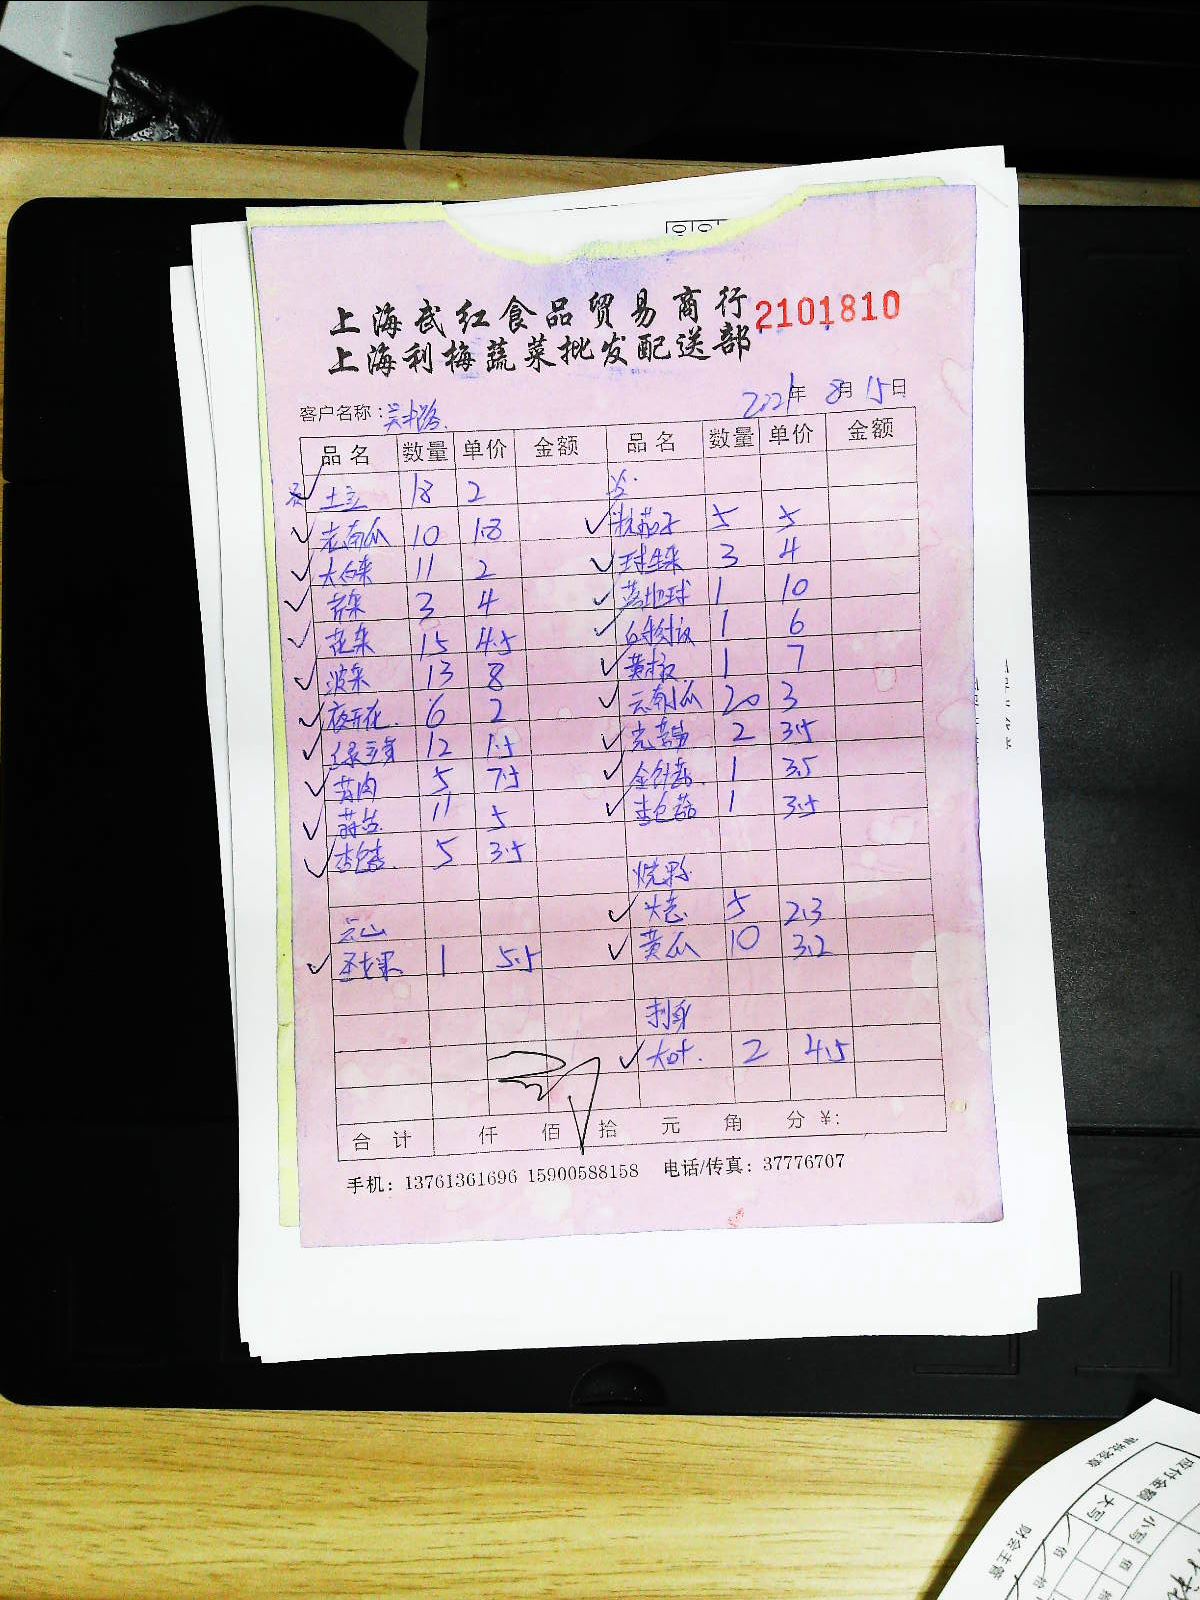 上海武红食品贸易商行
2101810
上海利梅蔬菜批发配送部
客户名称：吴中路
2021年 8月 15日
品名 数量 单价 金额 品名 数量 单价 金额
土豆 18 2
老南瓜 10 1.8 杭茄子 5 5
大白菜 11 2 球生菜 3 4
3 4 1 10
花菜 15 4.5 1 6
菠菜 13 8 黄椒 1 7
夜开花 6 2 云南小瓜 20 3
绿豆芽 12 1.5 2 3.5
5 7.5 金针菇 1 3.5
蒜苗 11 5 杏包菇 1 3.5
杏包菇 5 3.5
烧腊
云山 大葱 5 2.3
火龙果 1 5.5 黄瓜 10 3.2
刺身
大叶 2 4.5
合计 仟 佰 拾 元 角 分 ¥:
手机：13761361696 15900588158 电话/传真：37776707
审批签章
应付金额
大写
小写
佰
佰
拾
财会主管